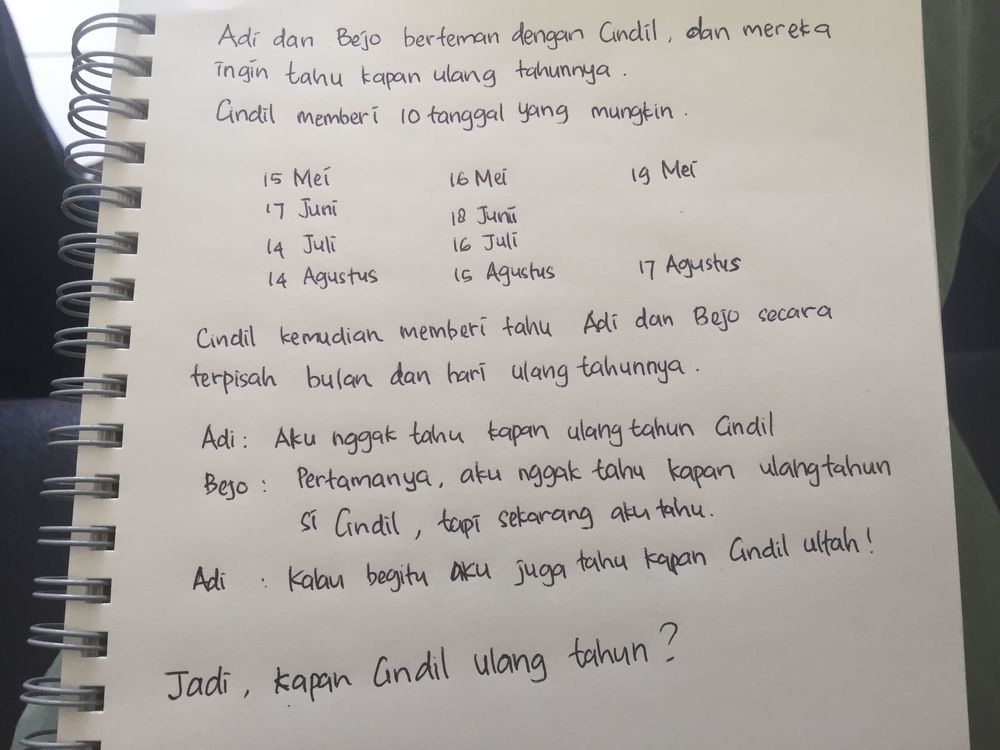 Adi dan Bejo berteman dengan Cindil, dan mereka
ingin tahu kapan ulang tahunnya.
Cindil memberi 10 tanggal yang mungkin.
15 Mei 16 Mei 19 Mei
17 Juni 18 Juni
14 Juli 16 Juli
14 Agustus 15 Agustus 17 Agustus
Cindil kemudian memberi tahu Adi dan Bejo secara
terpisah bulan dan hari ulang tahunnya.
Adi: Aku nggak tahu kapan ulang tahun Cindil
Bejo: Pertamanya, aku nggak tahu kapan ulangtahun
si Cindil, tapi sekarang aku tahu.
Adi : Kalau begitu aku juga tahu kapan Cindil ultah!
Jadi, kapan Cindil ulang tahun?